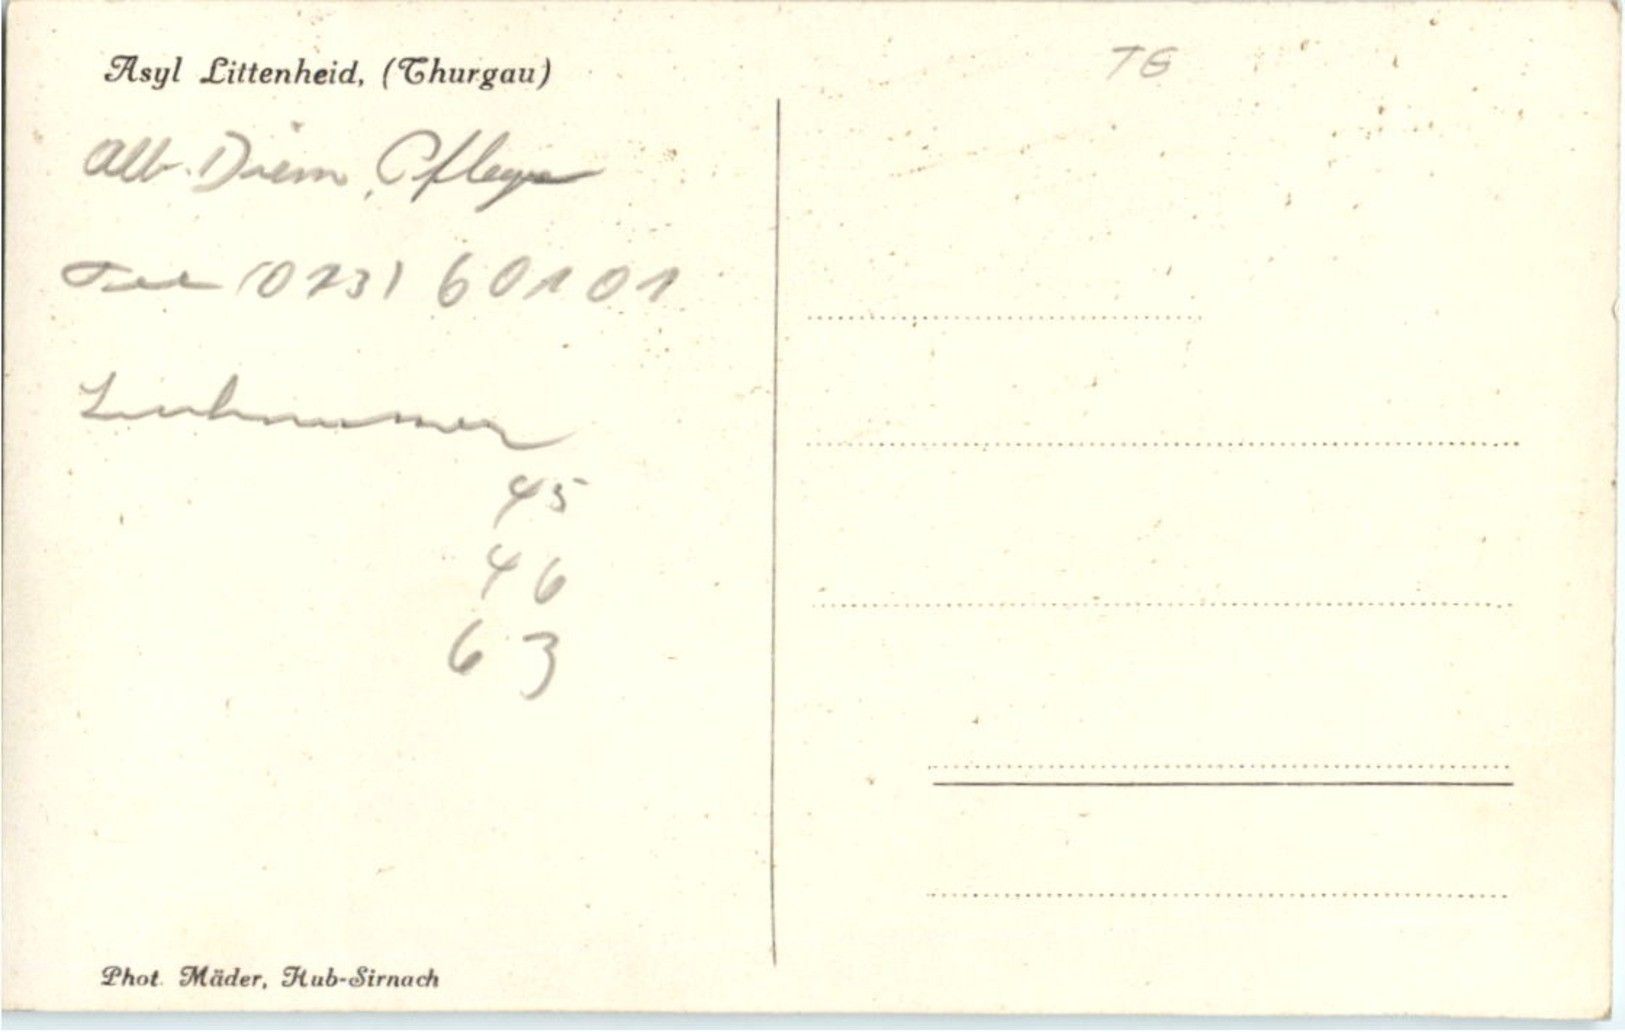 Asyl Littenheid, (Thurgau)
TG
Alb. Diem, Pfleger
Tel (073) 60101
45
46
63
Phot. Mäder, Hub-Sirnach